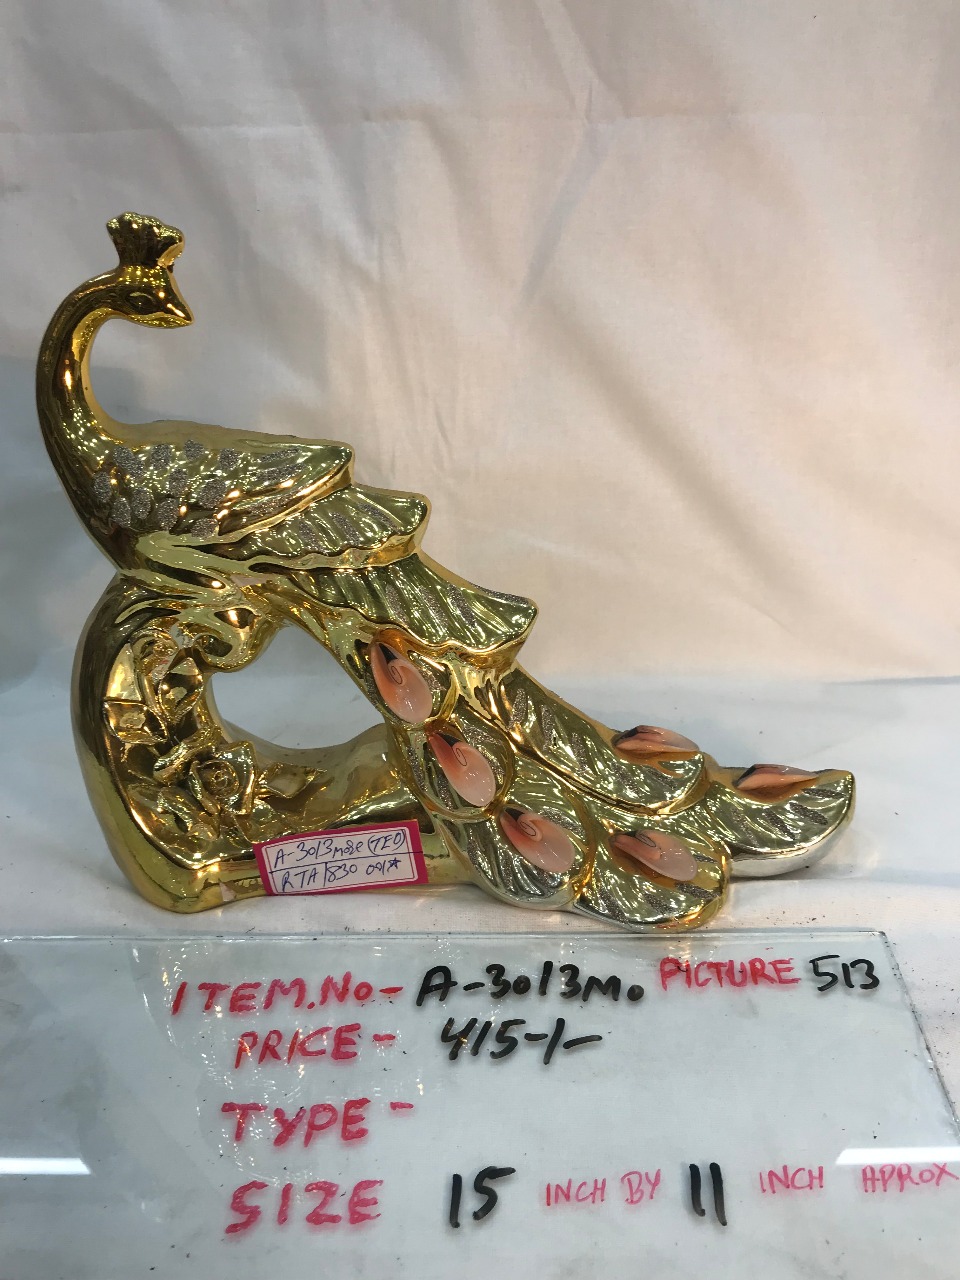 A-3013more (TEO)
RTA/830
ITEM.No- A-3013Mo PICTURE 513
PRICE- 415-/-
TYPE-
SIZE 15 INCH BY 11 INCH APROX